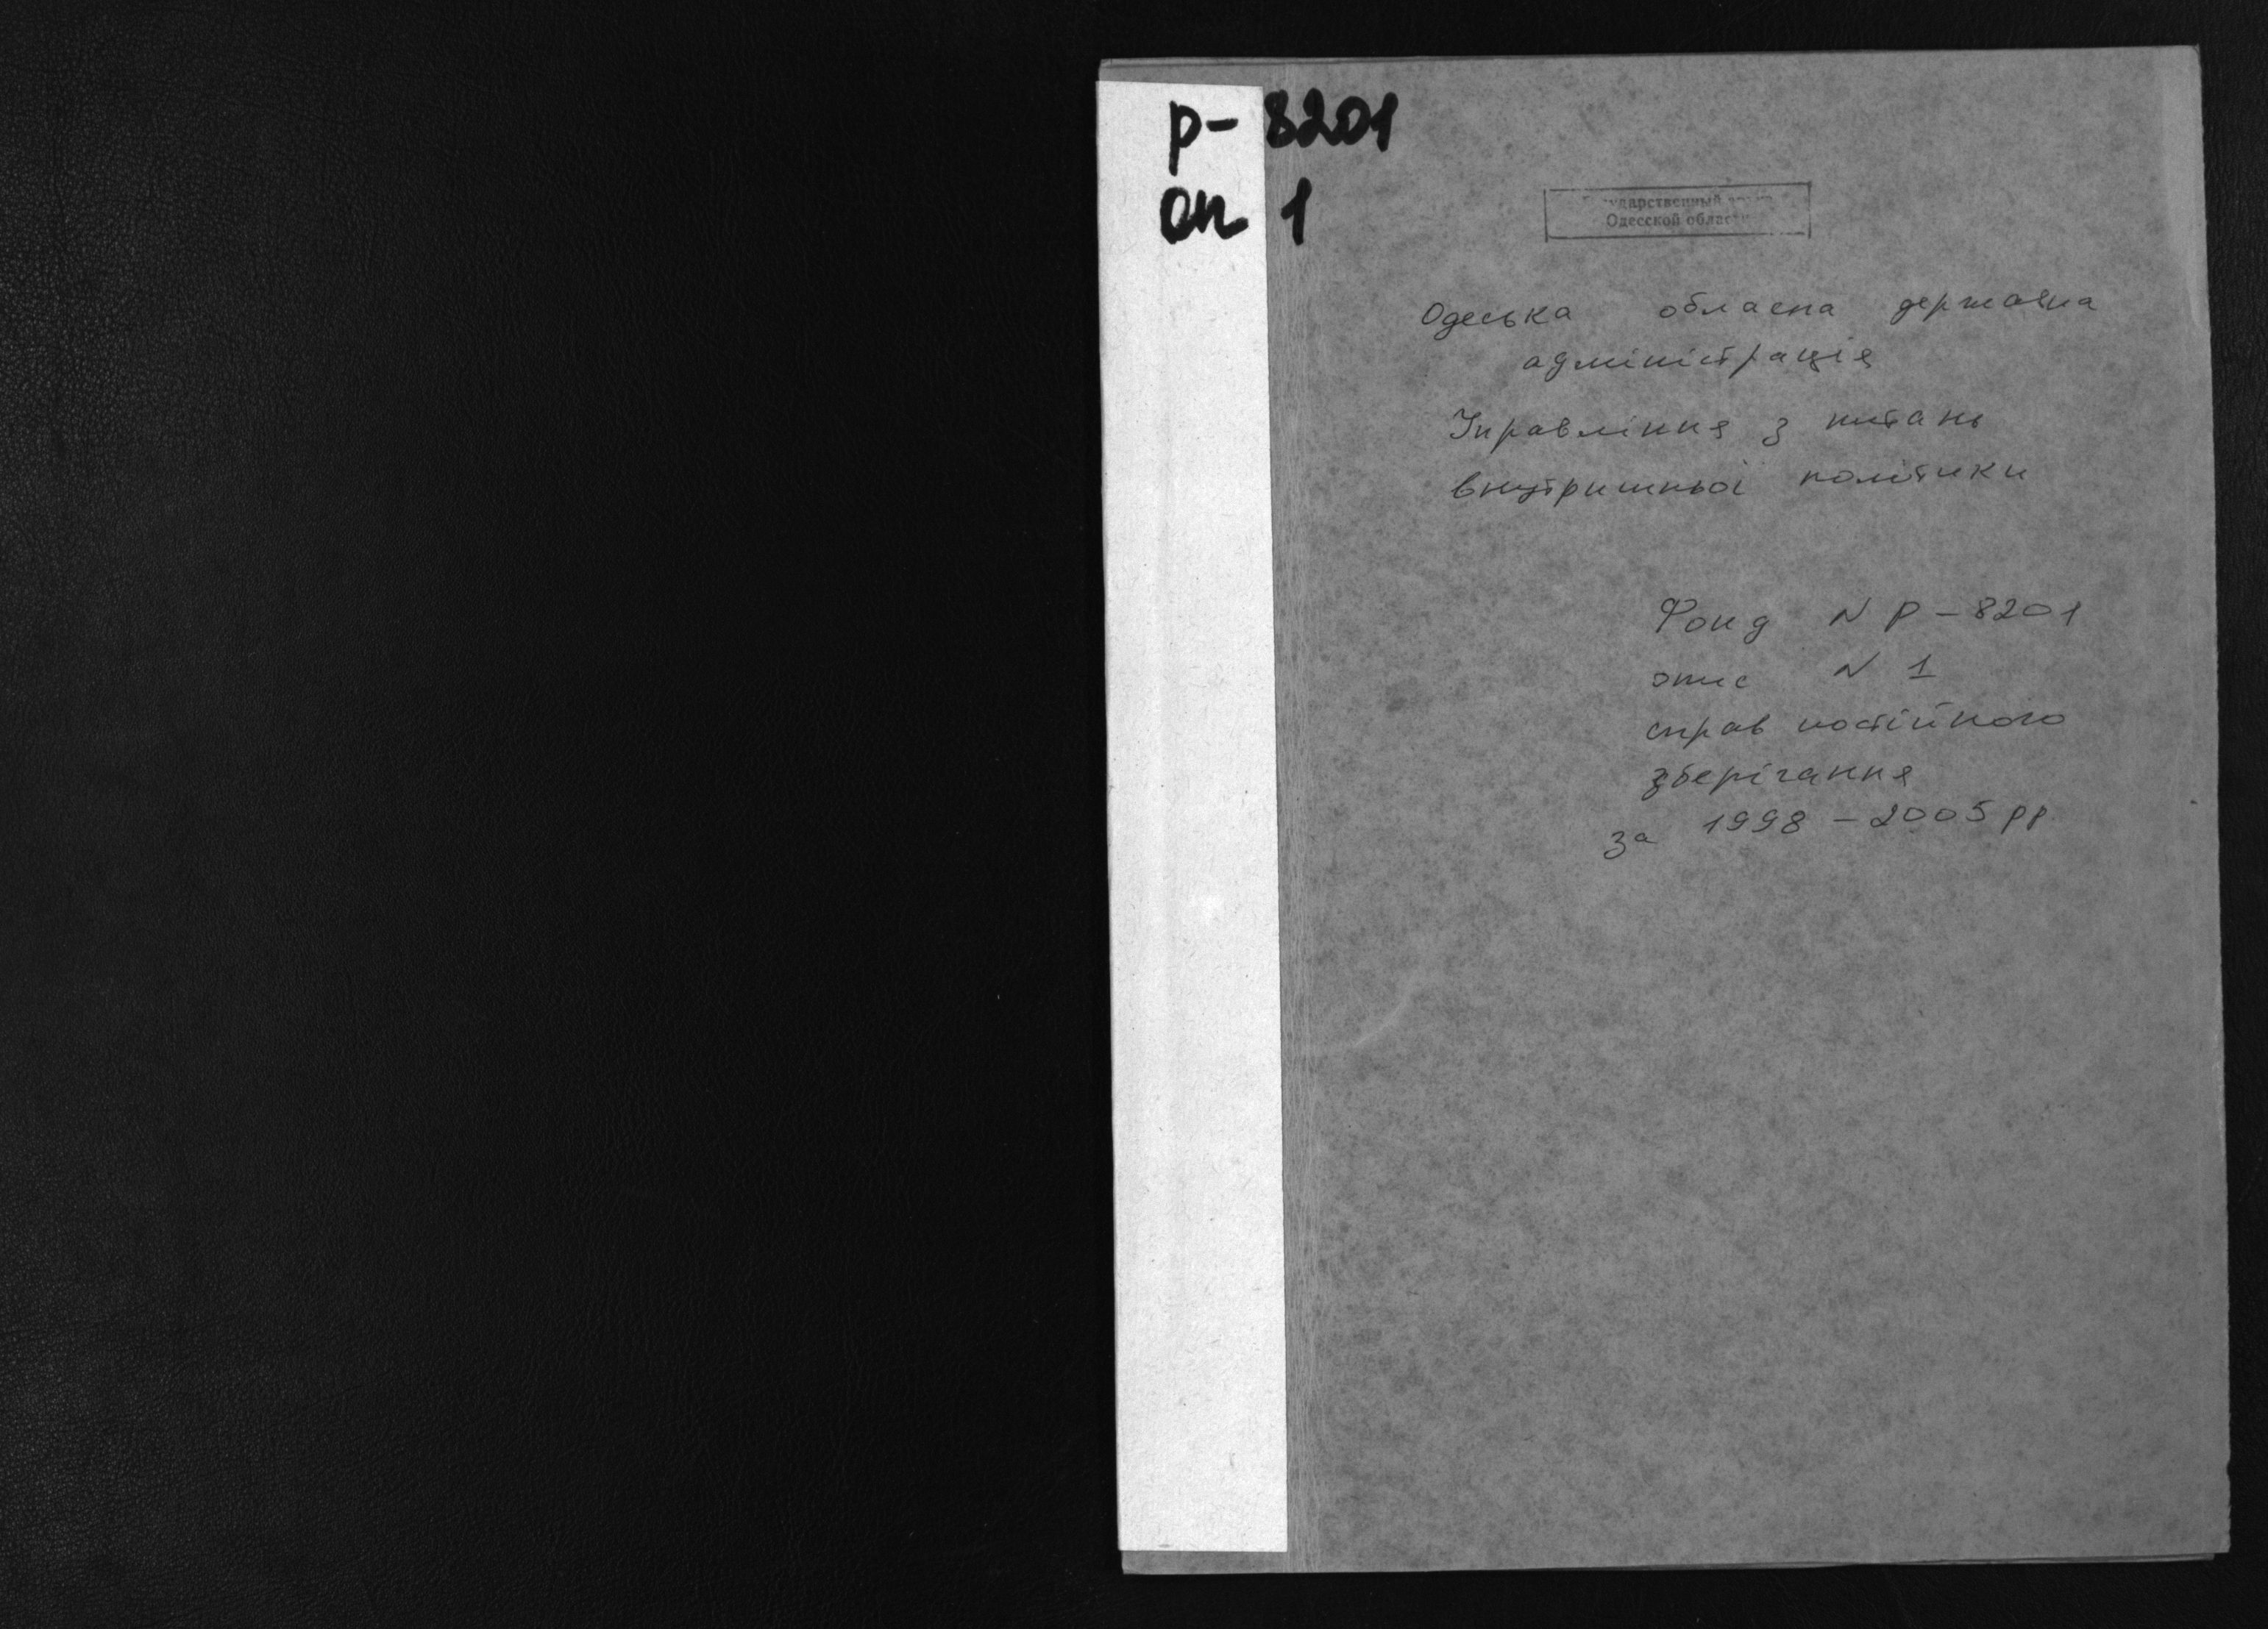 р- 8201
оп 1
Одесской
Одеська обласна державна
адміністрація
Управління з питань
внутришньоі політики
Фонд N Р-8201
опис N 1
справ постійного
зберігання
за 1998-2005 рр